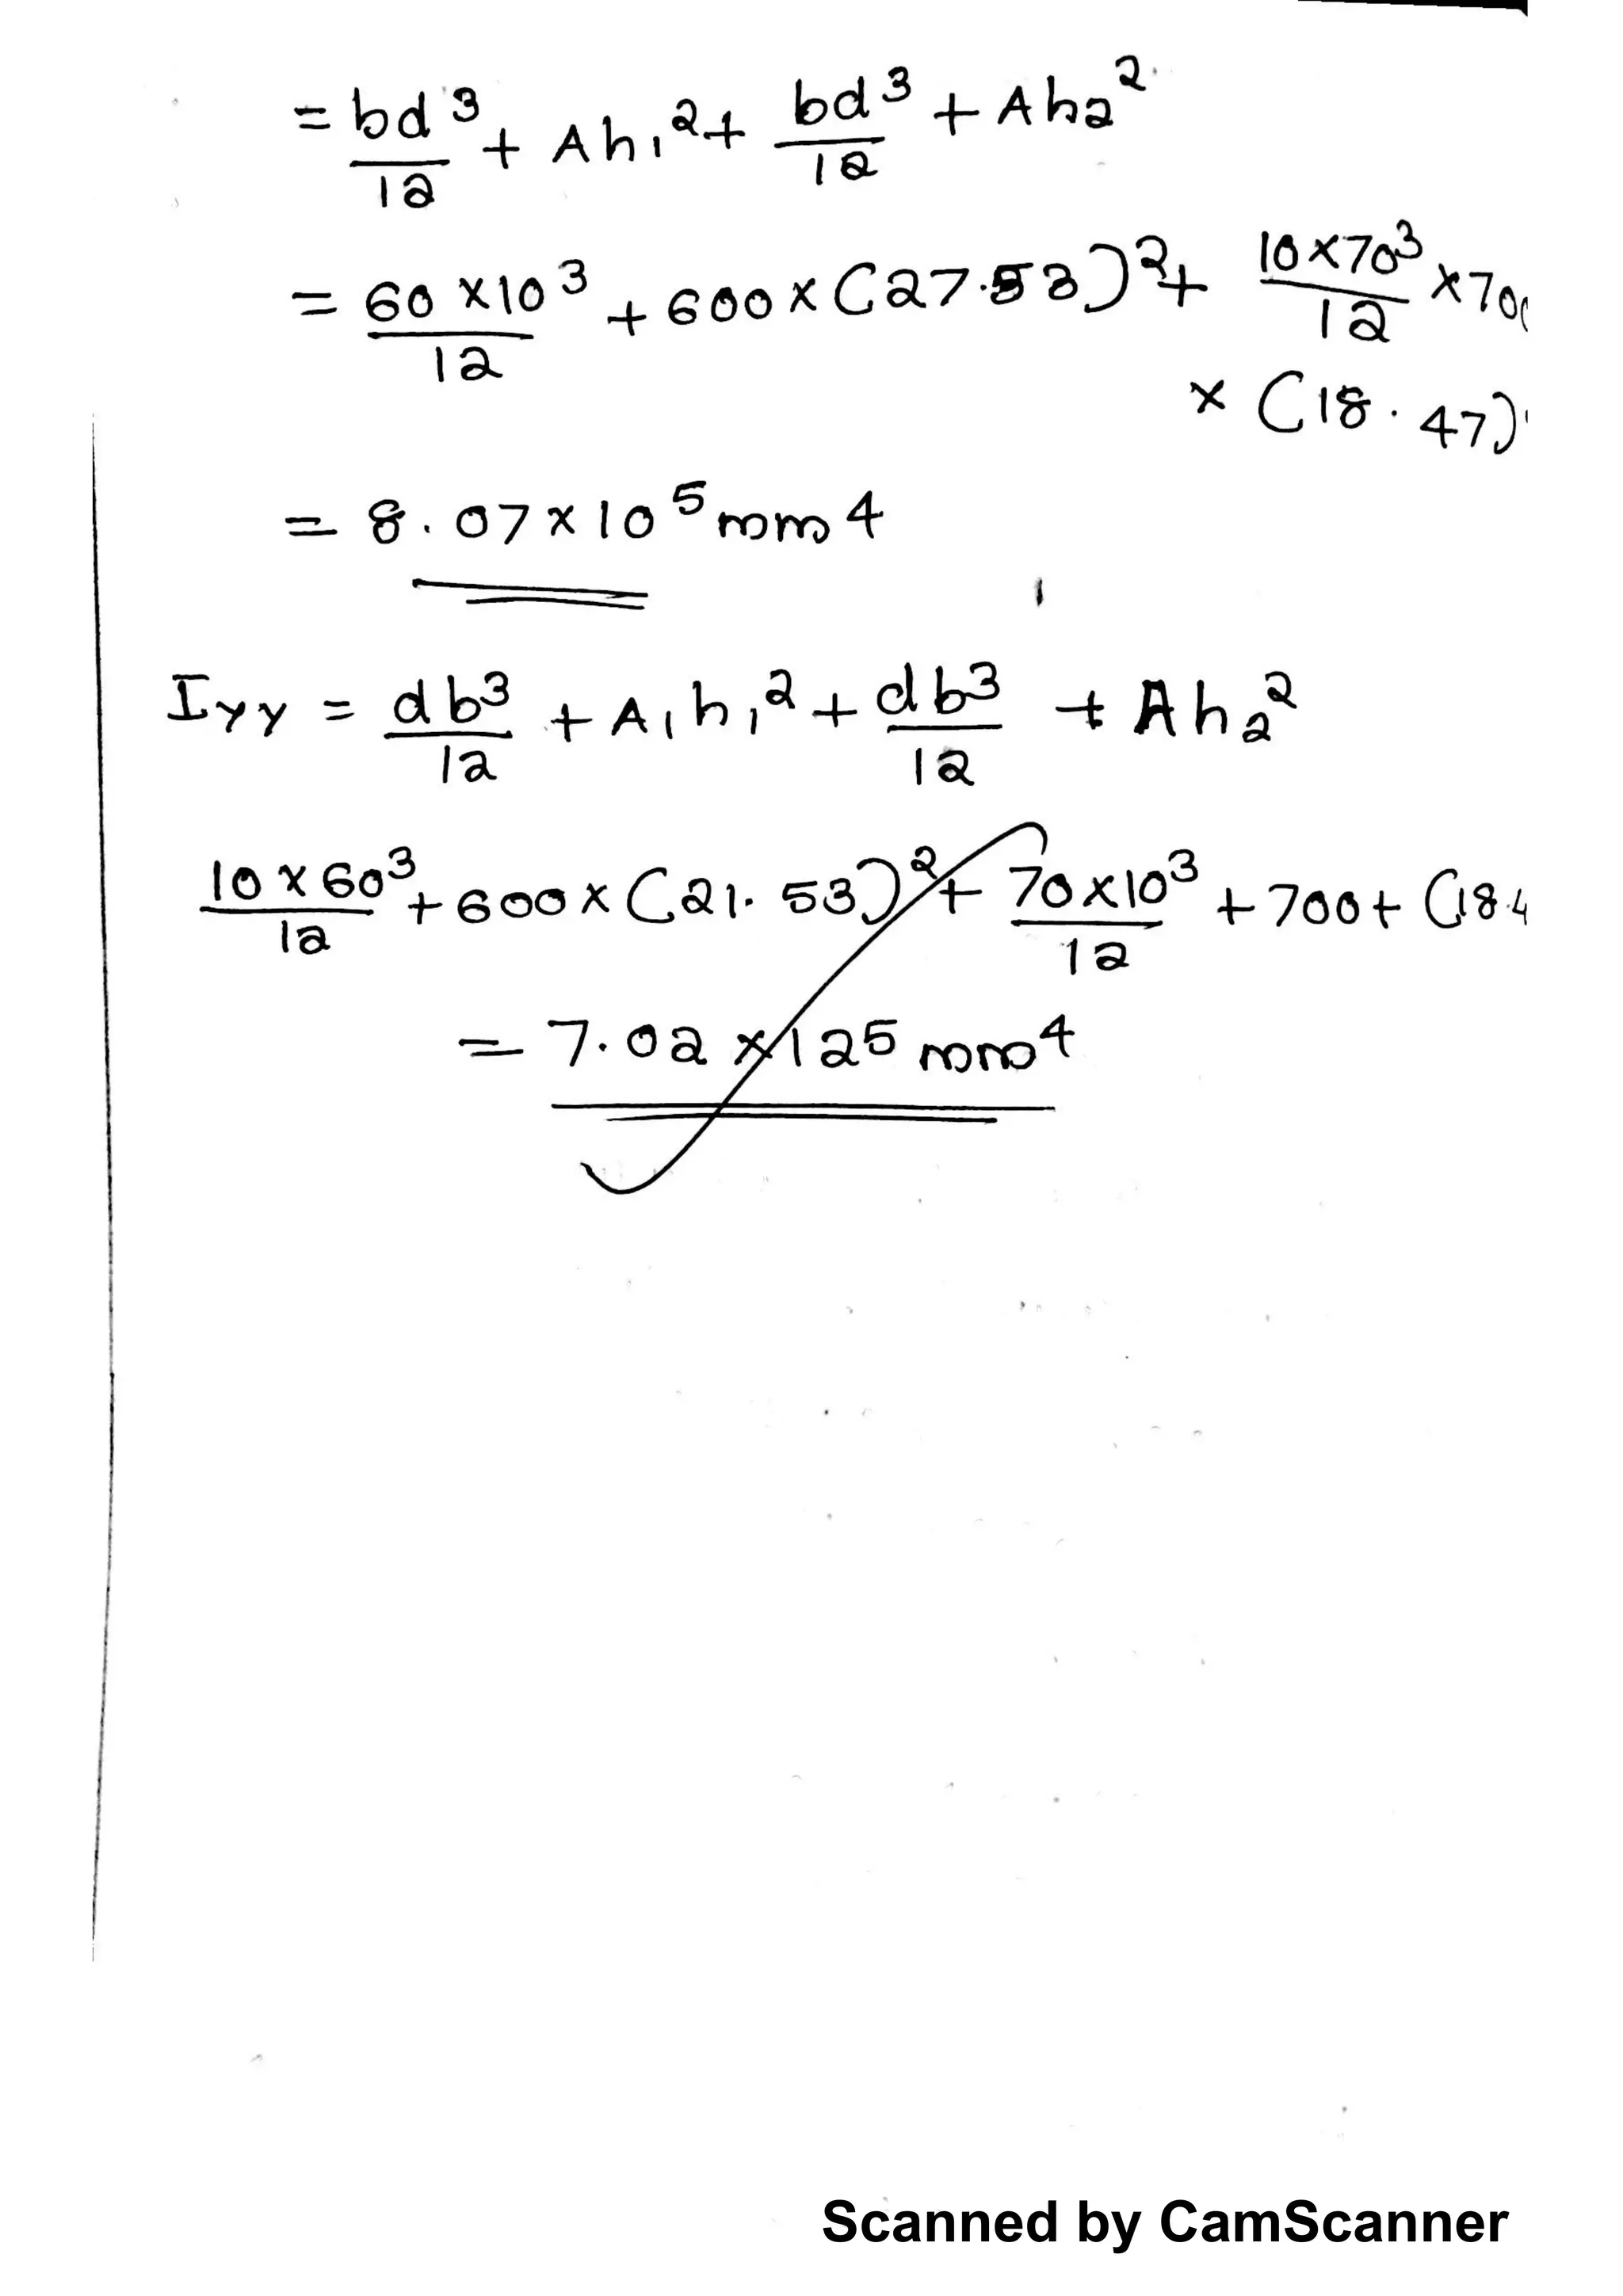 = bd³/12 + Ah₁² + bd³/12 + Ah₂²
= 60 × 10³/12 + 600 × (27.53)² + 10 × 70³/12 × 700
× (18.47)
= 8.07 × 10⁵ mm4
Iyy = db³/12 + A₁h₁² + db³/12 + Ah₂²
10 × 60³/12 + 600 × (21.53)² + 70 × 10³/12 + 700 + (18.4
= 7.02 × 125 mm⁴
Scanned by CamScanner